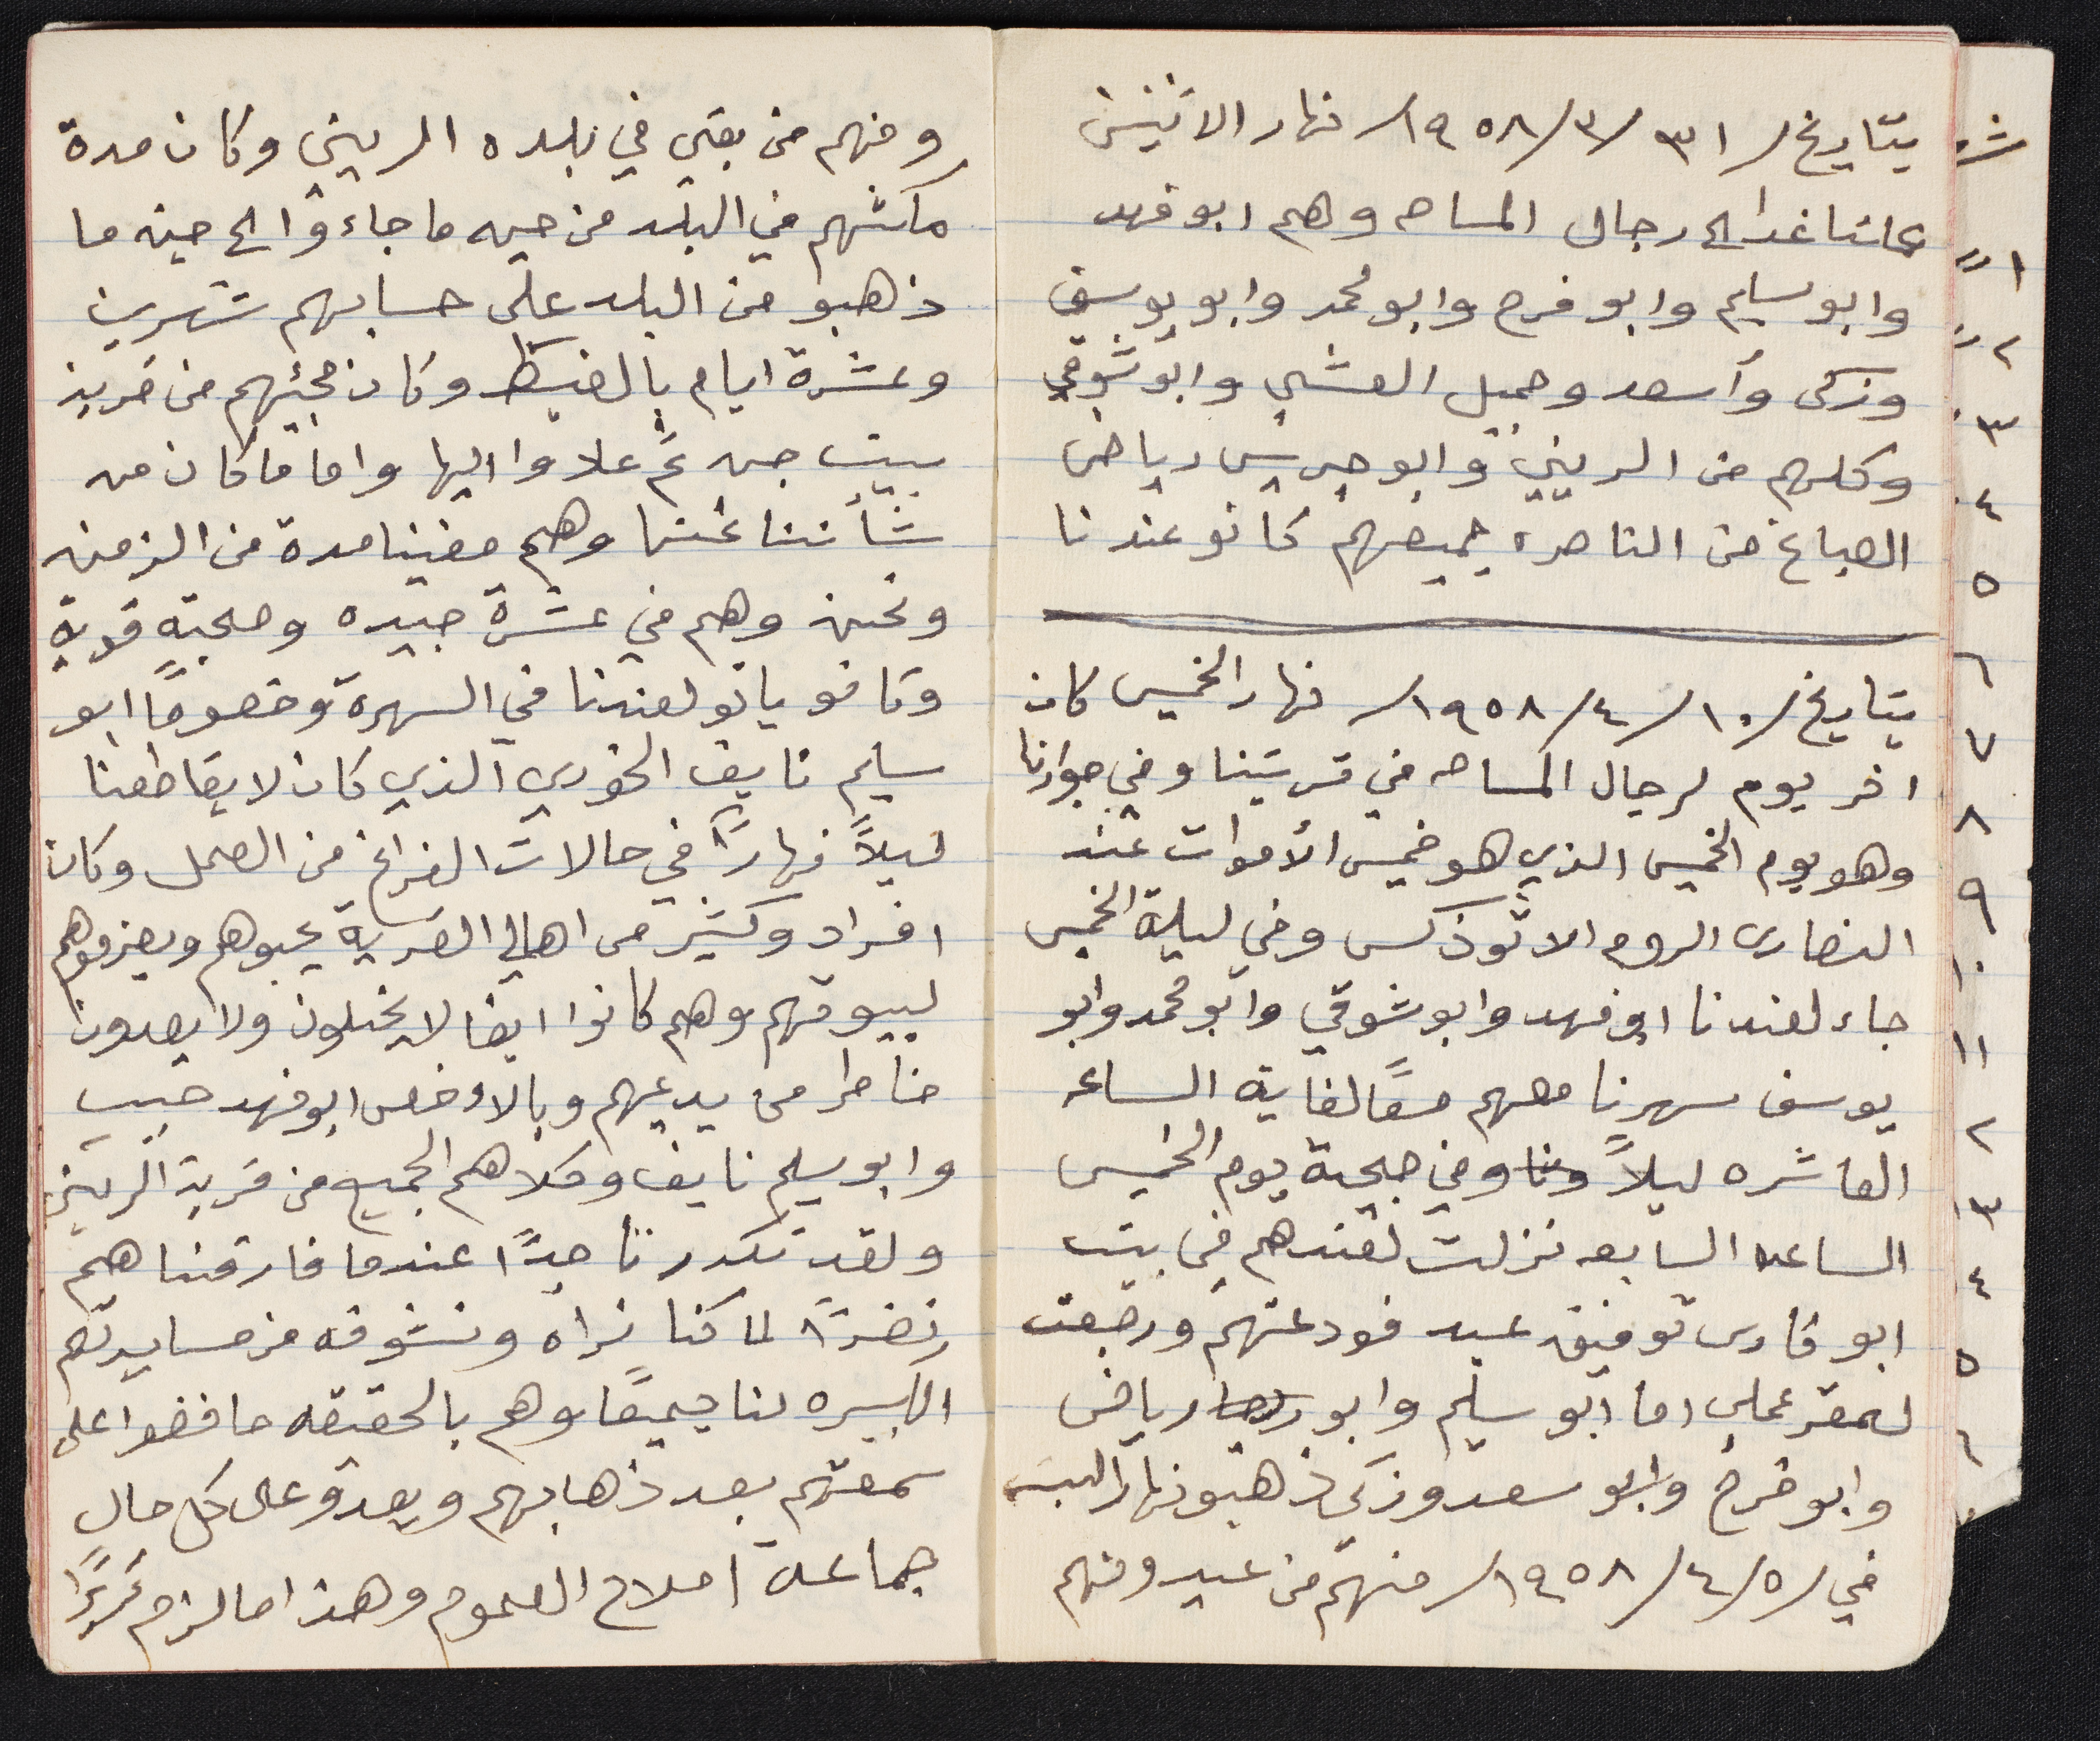 بتاريخ /٣١/٣/١٩٥٨/ نهار الاثنين
عملنا غدا الى رجال المساحه وهم ابو فهد
وابو سليم وابو فرح وابو محمد وابو يوسف
وزكى وأسعد وجميل العشي وابو شوقي
وكلهم من الرينه وابو جريس رياض
الصباغ من الناصره جميعهم كانو عندنا
بتاريخ /١٠/٤/١٩٥٨/ نهار الخميس كان
اخر يوم لرجال المساحه في قريتنا وفي جوارنا
وهو يوم الخميس الذي هو خميس الأموات عند
النصارى الروم الاثوذكس وفي ليلة الخميس
جاء لعندنا ابو فهد وابو شوقي وابو محمد وابو
يوسف سهرنا معهم معًا لغاية الساعه
العاشره ليلاً وفي صبحية يوم الخميس
الساعه السابعه نزلت لعندهم في بيت
ابو فارس توفيق عبد فودعتهم ورجعت
لمقر عملي اما ابو سليم وابو رياض
وابو فرح وابو سعد وزكي ذهبو نهار السبت
في /٥/٤/١٩٥٨/ منهم من عيد ومنهم
ومنهم من بقي في بلده الرينه وكان مدة
مكثهم في البلد من حين ما جاءوا الى حين ما
ذهبو من البلد على حسابهم شهرين
وعشرة ايام بالضبط وكان مجيئهم من قرية
بيت جن ثم علاوا اليها واما ما كان من
شأننا نحنا وهم مضينا مدة من الزمن
ونحن وهم في عشرة جيده وصحبة قوية
وكانو ياتو لعندنا في السهرة وخصوصًا ابو
سليم نايف الخوري الذي كان لا يقاطعنا
ليلاً نهارًا في حالات الفراغ من العمل وكان
افراد وكثير من اهالي القرية يحبوهم ويعزموهم
لبيوتهم وهم كانوا ايضا لا يخجلون ولا يصدون
خاطر من يدعيهم وبالاخص ابو فهد حبيب
وابو سليم نايف وكلاهم الجميع من قرية الرينه
ولقد تكدرنا جدًا عندما فارقناهم
نضرًا لما كنا نراه ونشوفه من مسايرتهم
الكبيره لنا جميعًا وهم بالحقيقه حافضوا على
سمعتهم بعد ذهابهم ويعدو على كل حال
جماعة املاح العموم وهذا ما لزم تحريرًا
١"
٢"
٣
٤
٥
٦
٧
٨
٩
١٠
١١
٢
٣
٤
٥
٦